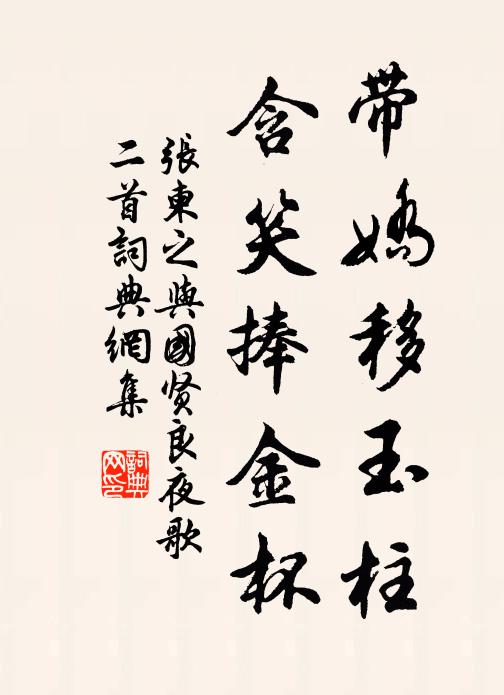 带娇移玉柱
含笑捧金杯
張東之與國贤良夜歌
二首詞典網集
詞典
网印